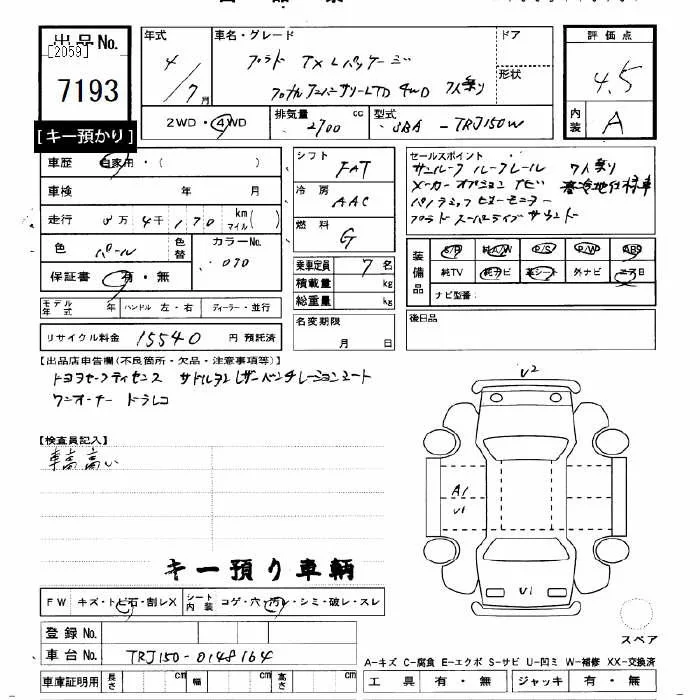 出品No.
[2059]
7193
[キー預かり]
年式
4/7月
車名・グレード
プラド TX Lパッケージ
70thアニバーサリーLTD 4WD 7人乗り
ドア
形状
評価点
4.5
内装
A
2WD・4WD
排気量 2700 cc
型式 3BA - TRJ150W
車歴 自家用・( )
車検 年 月
走行 万 4千 170 km マイル ( )
色 パール 色替
カラーNo. 070
保証書 有・無
シフト FAT
冷房 AAC
燃料 G
乗車定員 7名
積載量 kg
総重量 kg
セールスポイント
サンルーフ ルーフレール 7人乗り
メーカーオプションナビ 寒冷地仕様車
パノラミックビューモニター
プラドスーパーライブサウンド
装備品
S/R 純A/W P/S P/W ABS
純TV 純ナビ 革シート 外ナビ エアB
ナビ型番:
モデル年式 年 ハンドル 左・右 ディーラー・並行
リサイクル料金 15540 円 預託済
名変期限
月 日
後日品
【出品店申告欄(不良箇所・欠品・注意事項等)】
トヨタセーフティセンス サドルタンレザーベンチレーションシート
ワンオーナー ドラレコ
【検査員記入】
車高高い
キー預り車輌
U2
A1
U1
U1
スペア
FW キズ・トビ石・割レX
シート内装 コゲ・穴・汚レ・シミ・破レ・スレ
登録No.
車台No. TRJ150-0148164
車庫証明用 長さ cm 幅 cm 高さ cm
A-キズ C-腐食 E-エクボ S-サビ U-凹ミ W-補修 XX-交換済
工具 有・無 ジャッキ 有・無